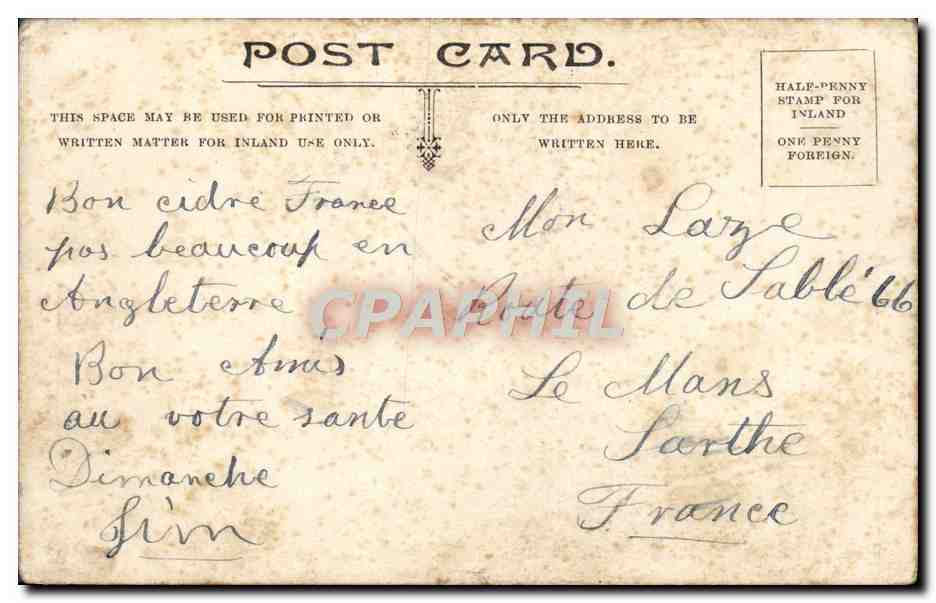 POST CARD.
THIS SPACE MAY BE USED FOR PRINTED OR
WRITTEN MATTER FOR INLAND USE ONLY.
ONLY THE ADDRESS TO BE
WRITTEN HERE.
HALF-PENNY
STAMP FOR
INLAND
ONE PENNY
FOREIGN.
Bon cidre France
pas beaucoup en
Angleterre
Bon Amis
au votre sante
Dimanche
Jim
Mon Laze
Route de Sablé 66
Le Mans
Sarthe
France
CPAPHIL